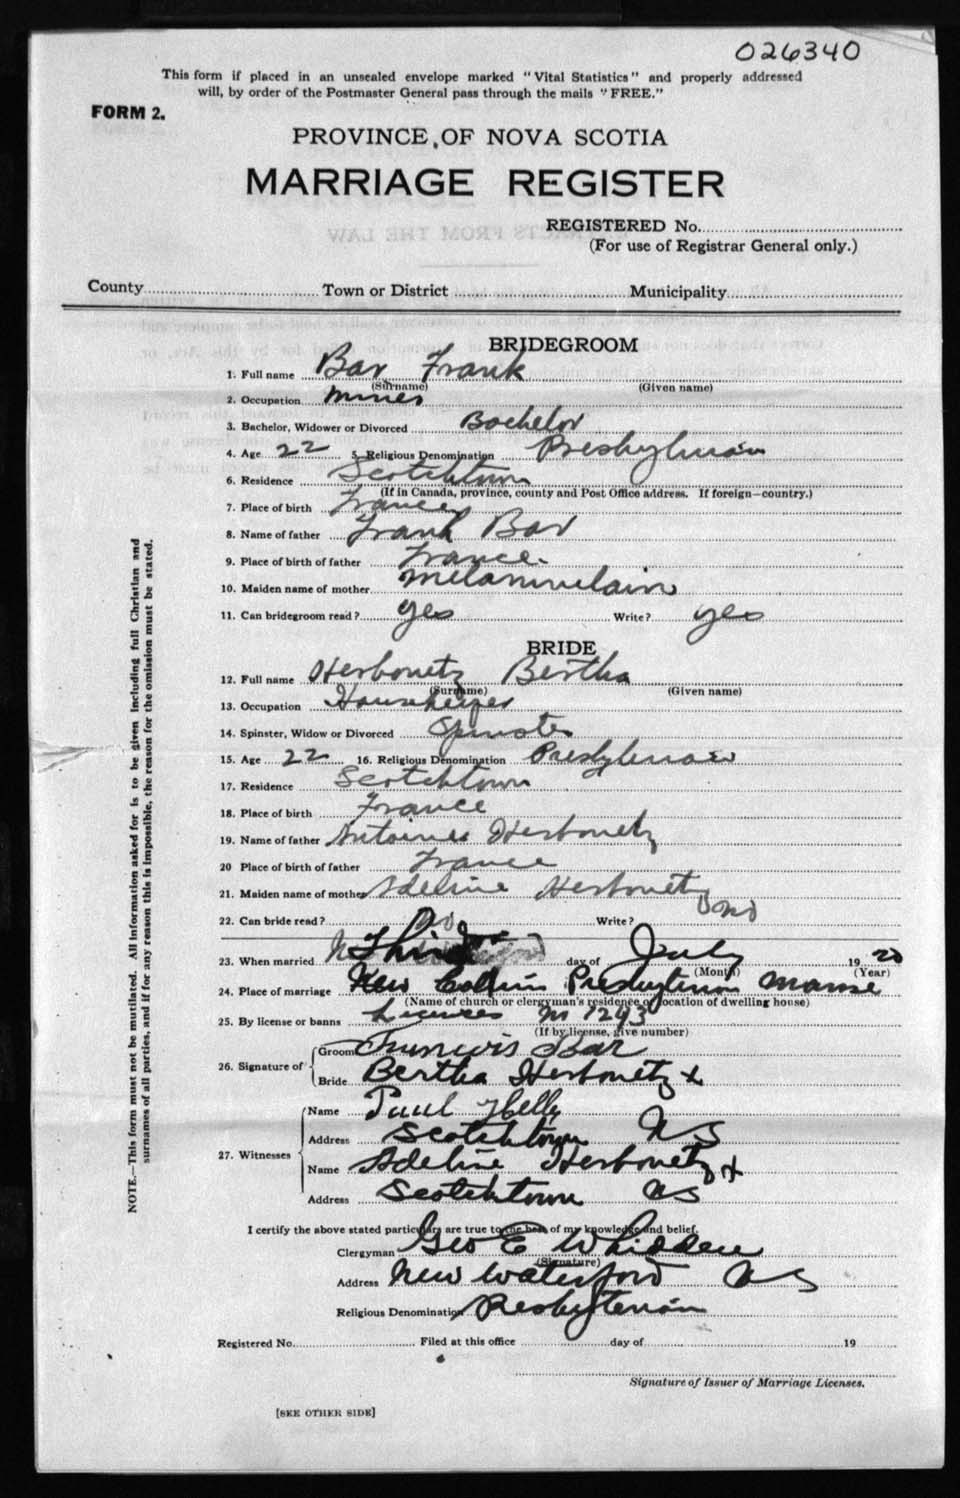 026340
This form if placed in an unsealed envelope marked "Vital Statistics" and properly addressed
will, by order of the Postmaster General pass through the mails "FREE."
FORM 2.
PROVINCE OF NOVA SCOTIA
MARRIAGE REGISTER
REGISTERED No.
(For use of Registrar General only.)
County Town or District Municipality
BRIDEGROOM
1. Full name Bar Frank
(Surname) (Given name)
2. Occupation Miner
3. Bachelor, Widower or Divorced Bachelor
4. Age 22 5. Religious Denomination Presbyterian
6. Residence Scotchtown
(If in Canada, province, county and Post Office address. If foreign—country.)
7. Place of birth France
8. Name of father Frank Bar
9. Place of birth of father France
10. Maiden name of mother
11. Can bridegroom read? yes Write? yes
BRIDE
12. Full name Herbonetz Bertha
(Surname) (Given name)
13. Occupation Housekeeper
14. Spinster, Widow or Divorced Spinster
15. Age 22 16. Religious Denomination Presbyterian
17. Residence Scotchtown
18. Place of birth France
19. Name of father Antoine Herbonetz
20 Place of birth of father France
21. Maiden name of mother Adeline Herbonetz
22. Can bride read? No Write? no
23. When married Third day of July 1920
(Month) (Year)
24. Place of marriage New Presbyterian Manse
(Name of church or clergyman's residence or location of dwelling house)
25. By license or banns License 7293
(If by license, give number)
26. Signature of Groom Francois Bar
Bride Bertha Herbonetz x
27. Witnesses
Name Paul
Address Scotchtown NS
Name Adeline Herbonetz x
Address Scotchtown NS
I certify the above stated particulars are true to the best of my knowledge and belief.
Clergyman Geo E Whidden
(Signature)
Address New Waterford NS
Religious Denomination Presbyterian
Registered No. Filed at this office day of 19
Signature of Issuer of Marriage Licenses.
[SEE OTHER SIDE]
NOTE.—This form must not be mutilated. All information asked for is to be given including full Christian and
surnames of all parties, and if for any reason this is impossible, the reason for the omission must be stated.